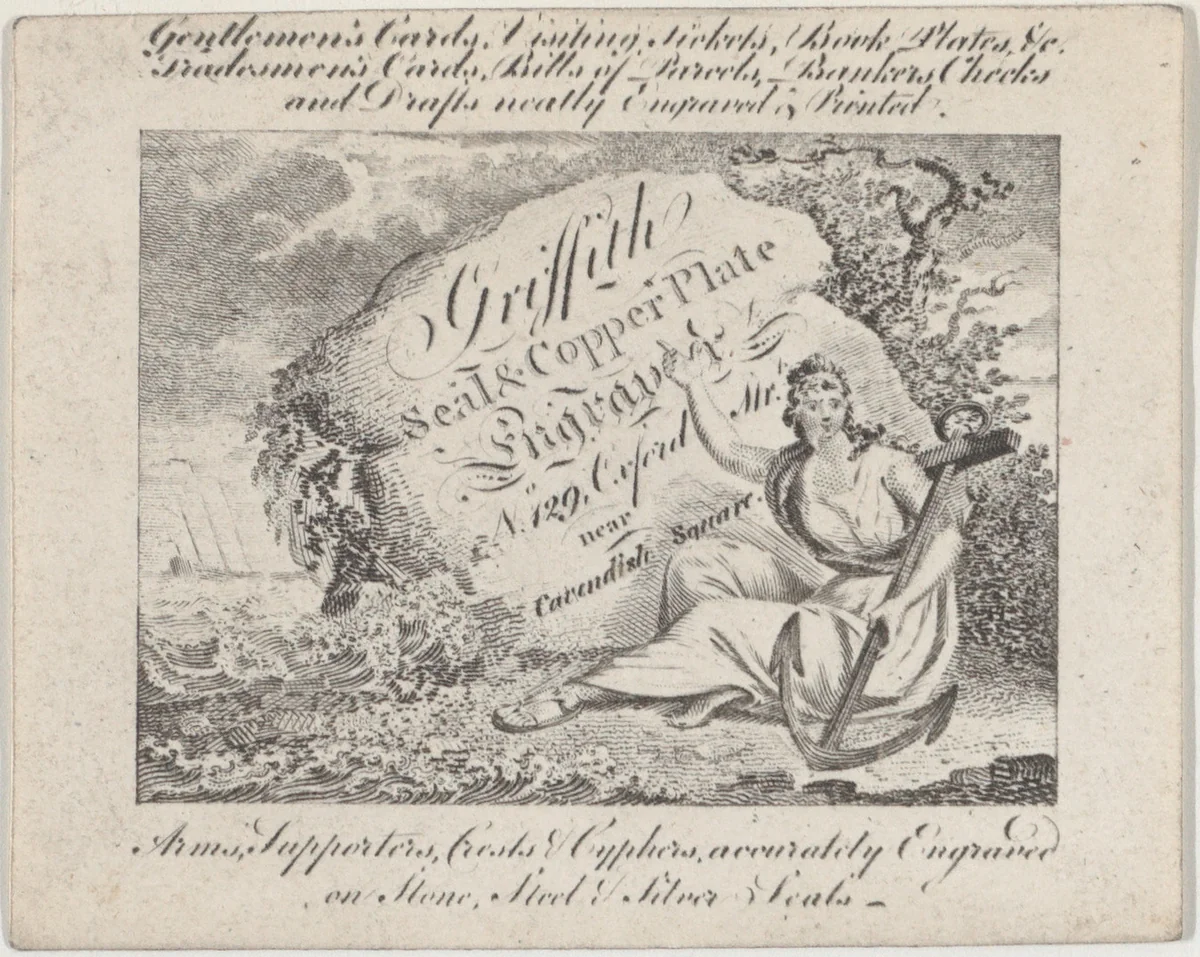 Gentlemen's Cards, Visiting Tickets, Book Plates, &c.
Tradesmen's Cards, Bills of Parcels, Bankers Checks
and Drafts neatly Engraved & Printed.
Griffith
Seal & Copper Plate
Engraver
No. 129, Oxford Str.t
near
Cavendish Square.
Arms, Supporters, Crests & Cyphers, accurately Engraved
on Stone, Steel & Silver Seals –